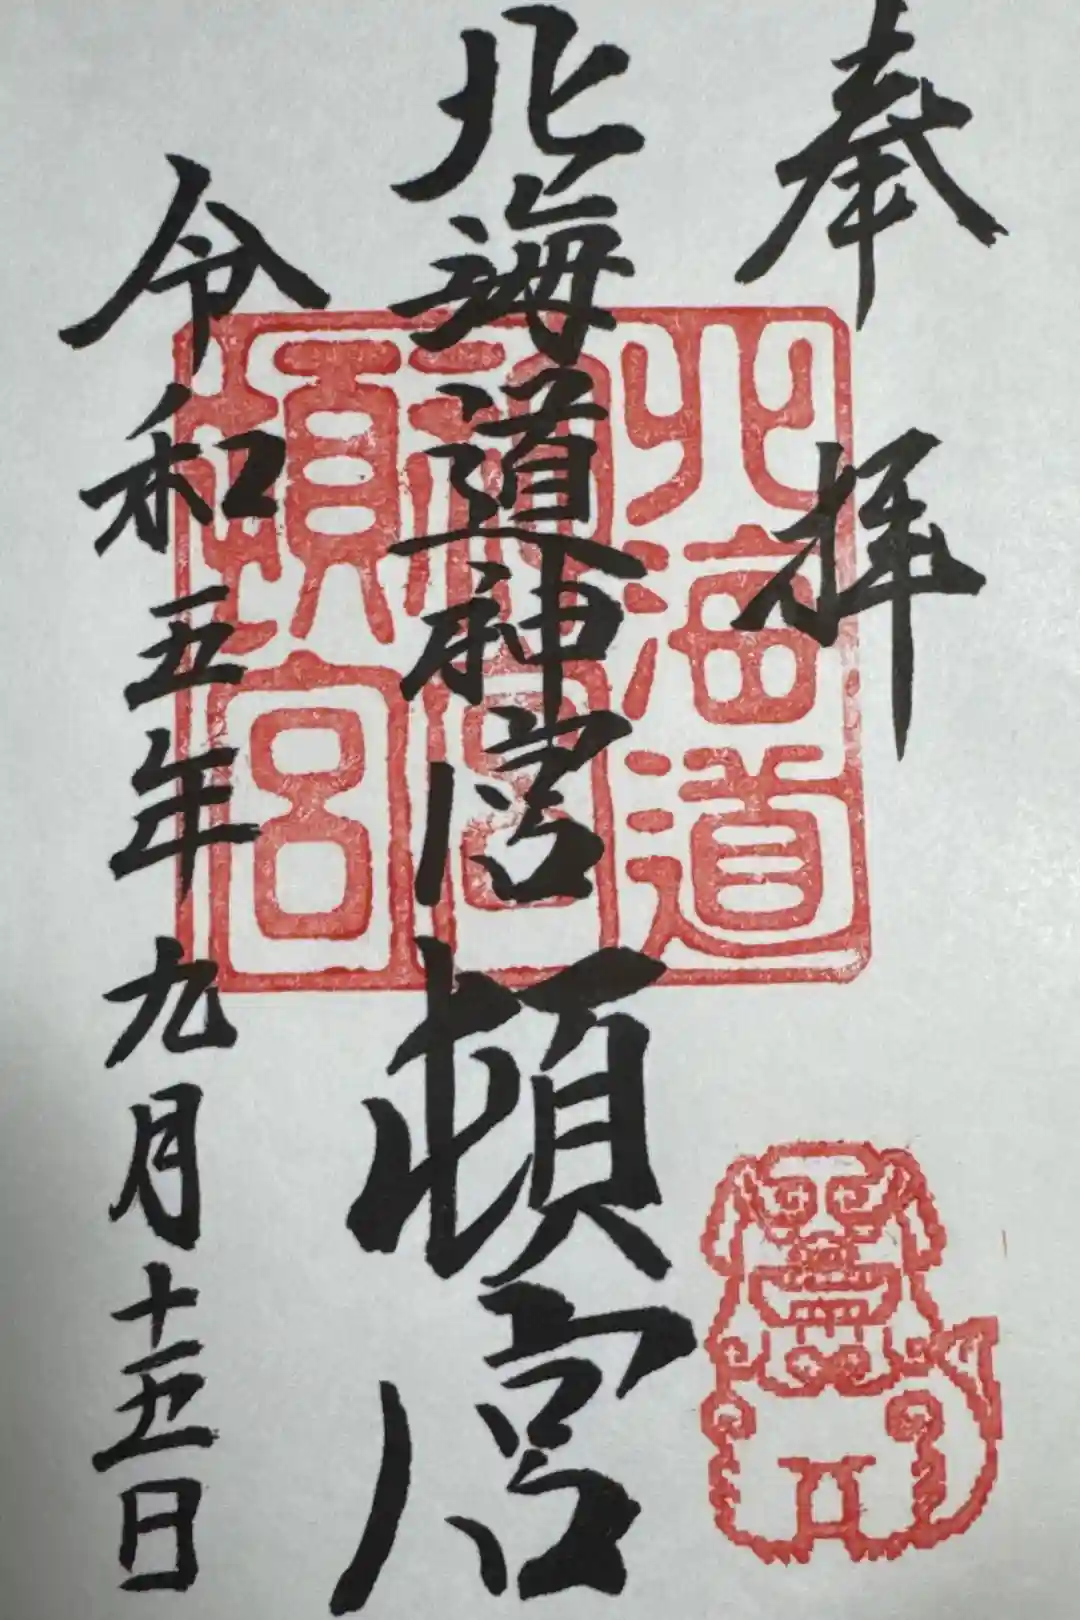 奉拝
北海道神宮頓宮
令和五年九月十五日
北海道
神宮
頓宮